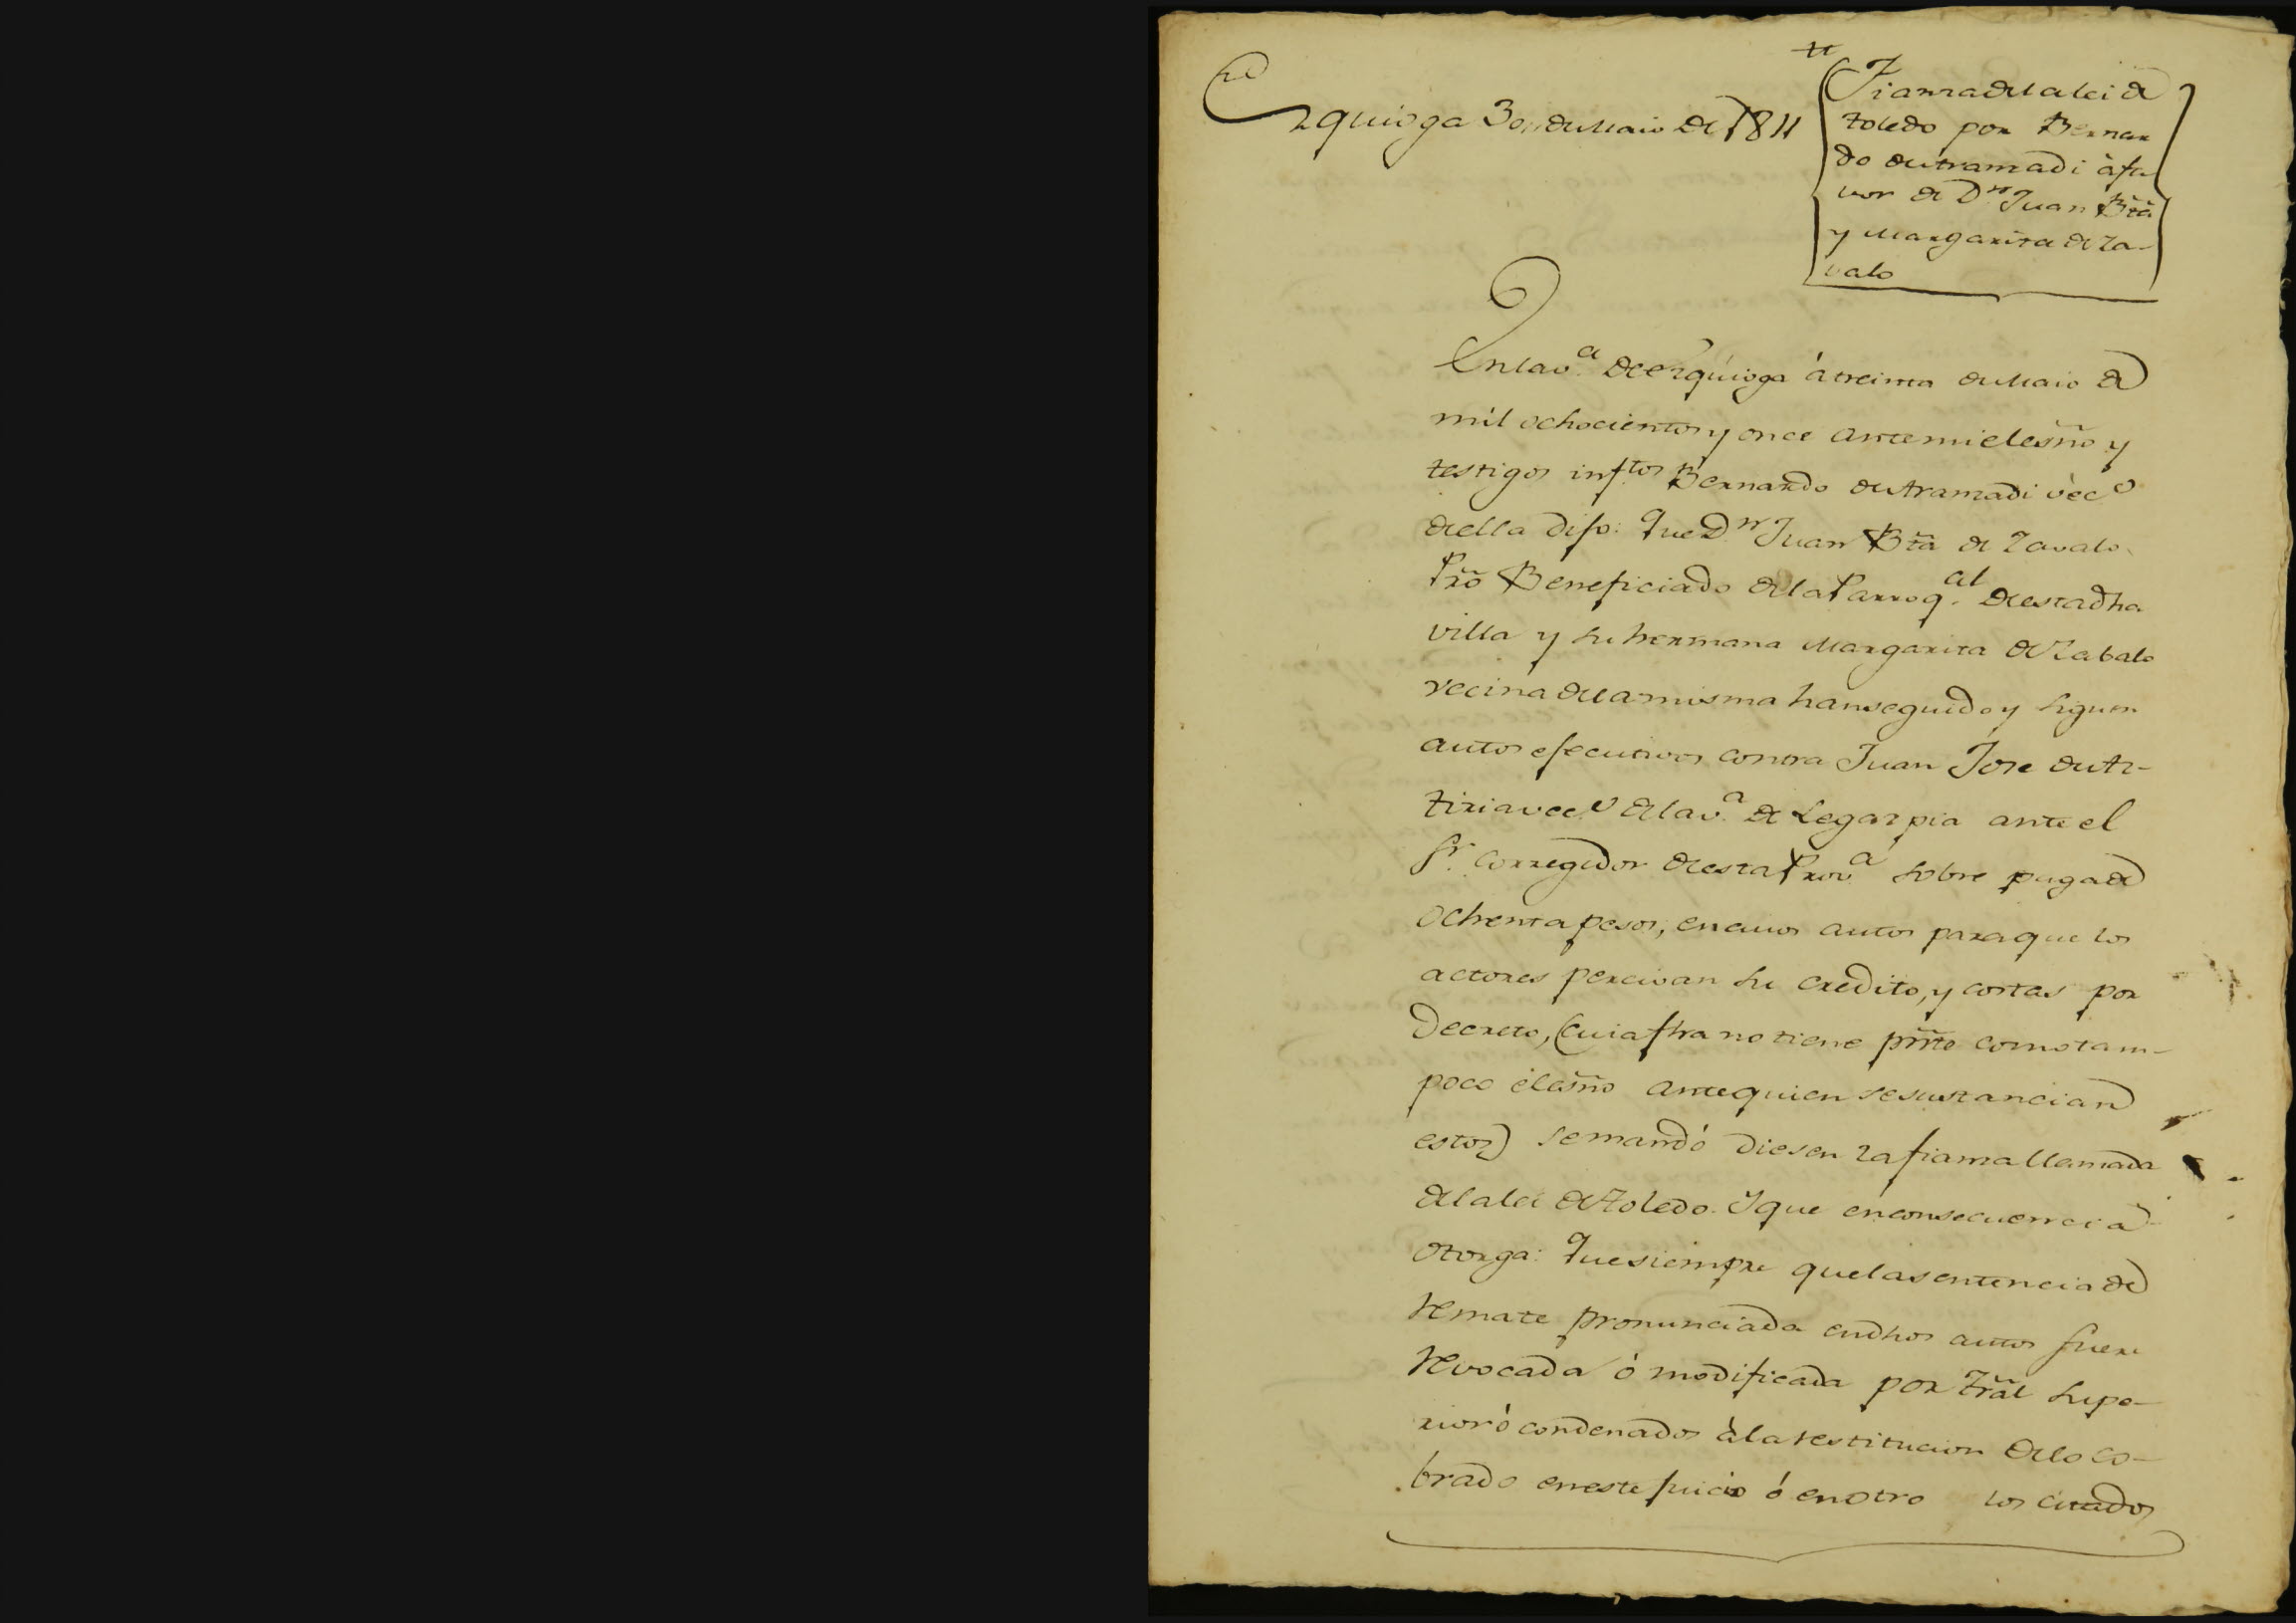 Ezquioga 30,, de Maio de 1811
Fianza de la lei de
toledo por Bernar
do de Aramadi à fa
vor de Dn Juan Bta
y Margarita de Za-
valo
En la va de Ezquioga á treinta de Maio de
mil ochocientos y once ante mi el esño y
testigos inftos Bernardo de Aramadi veco
de ella dijo: Que Dn Juan Bta de Zavalo
Pro Beneficiado de la Parroqal de esta dha
villa y su hermana Margarita de Zabalo
vecina de la misma han seguido y siguen
autos ejecutivos contra Juan Jose de
veco de la va de Legazpia ante el
Sr Corregidor de esta Prova sobre paga de
ochenta pesos, en cuios autos para que los
actores percivan su credito, y costas por
Decreto, (cuia fha no tiene pnte como tam-
poco el esño ante quien se sustancian
estos) se mandó diesen la fianza llamada
de la lei de Toledo. Y que en consecuencia
otorga: Que siempre que la sentencia de
remate pronunciada en dhos autos fuere
revocada ó modificada por Tral Supe-
rior ò condenados à la restitucion de lo co-
brado en este juicio ó en otro los citados